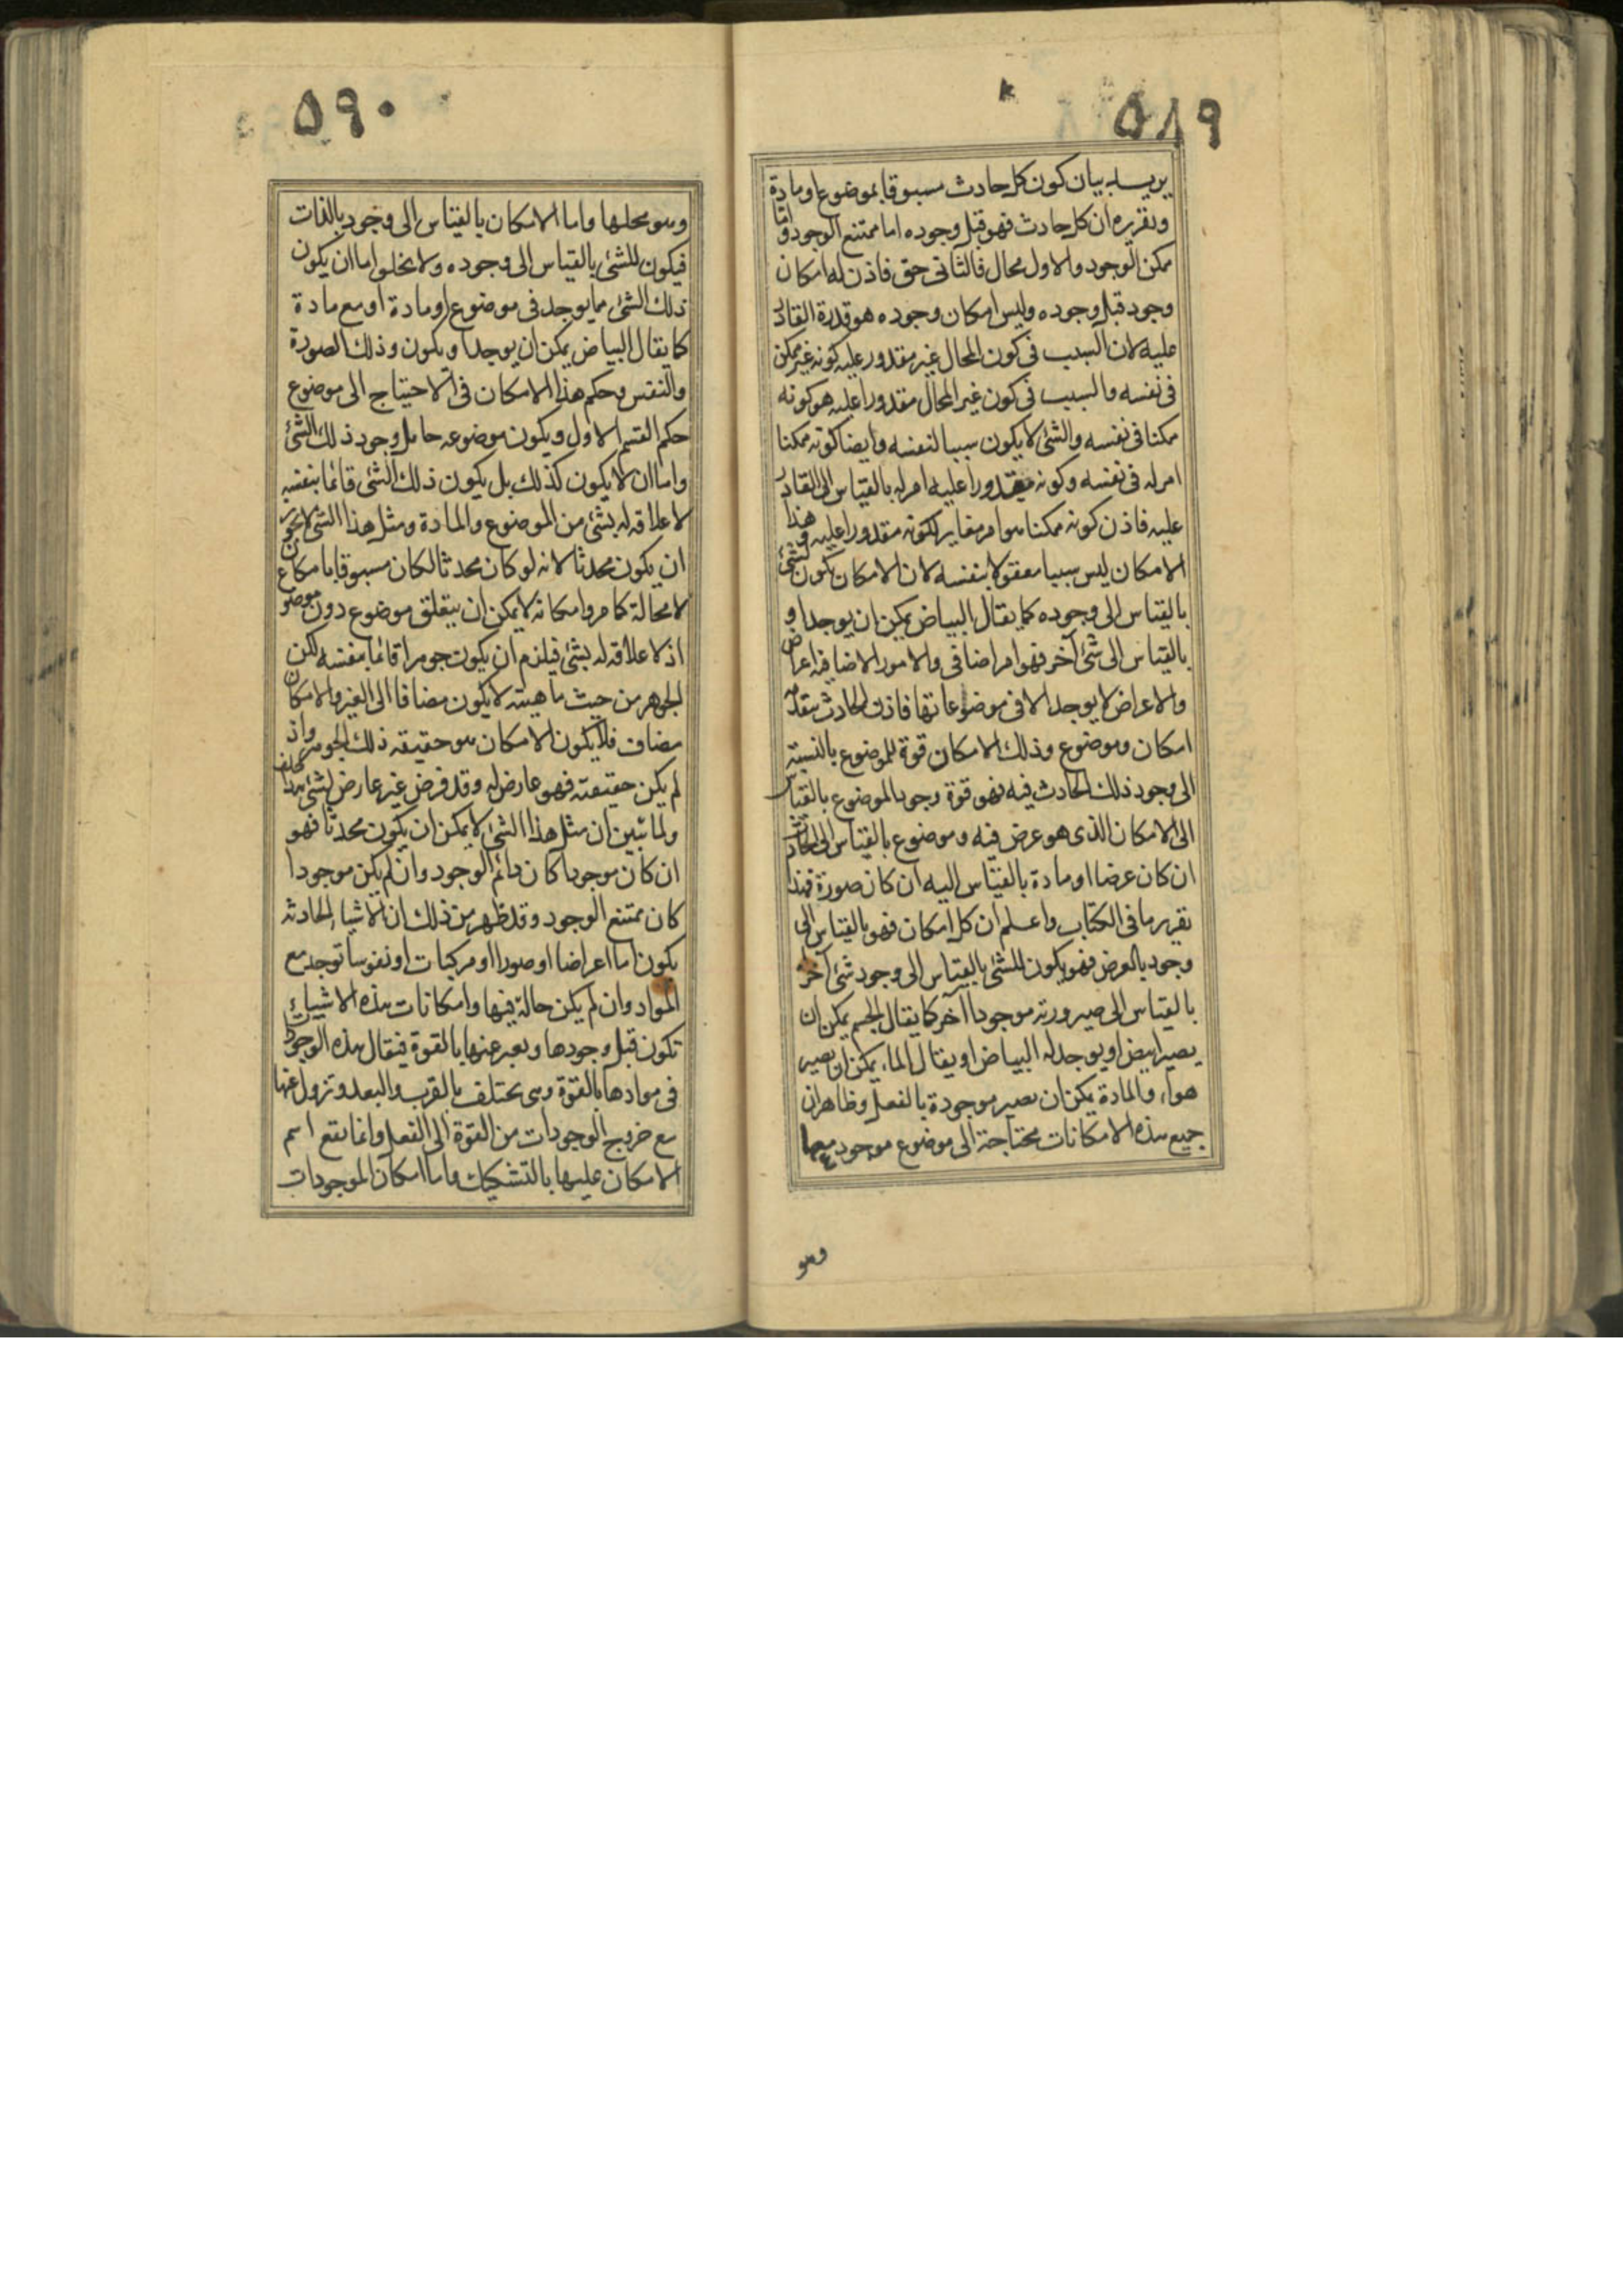 ٥٨٩
يريد بيان كون كل حادث مسبوقا بموضوع او مادة
وتقريره ان كل حادث فهو قبل وجوده اما ممتنع الوجود واما
ممكن الوجود والاول محال فالثانى حق فاذن له امكان
وجود قبل وجوده وليس امكان وجوده هو قدرة القادر
عليه لان السبب فى كون المحال غير مقدور عليه كونه غير ممكن
فى نفسه والسبب فى كون غير المحال مقدورا عليه هو كونه
ممكنا فى نفسه والشئ لا يكون سببا لنفسه وايضا كونه ممكنا
امر له فى نفسه وكونه مقدورا عليه امر له بالقياس الى القادر
عليه فاذن كونه ممكنا هو امر مغاير لكونه مقدورا عليه وهذا
الامكان ليس سببا معقولا بنفسه لان الامكان يكون لشئ
بالقياس الى وجوده كما يقال البياض يمكن ان يوجد او
بالقياس الى شئ آخر فهو امر اضافى والامور الاضافية اعراض
والاعراض لا يوجد الا فى موضوعاتها فاذن الحادث يتقدمه
امكان وموضوع وذلك الامكان قوة للموضوع بالنسبة
الى وجود ذلك الحادث فيه فهو قوة وجود الموضوع بالقياس
الى الامكان الذى هو عرض فيه وموضوع بالقياس الى الحادث
ان كان عرضا او مادة بالقياس اليه ان كان صورة فهذا
تقرير ما فى الكتاب واعلم ان كل امكان فهو بالقياس الى
وجود بالعرض فهو يكون للشئ بالقياس الى وجود شئ آخر
بالقياس الى صيرورته موجودا آخر كما يقال الجسم يمكن ان
يصير ابيض او يوجد له البياض او يقال الماء يمكن ان يصير
هواء والمادة يمكن ان يصير موجودة بالفعل وظاهر ان
جميع هذه الامكانات محتاجة الى موضوع موجود معها
وهو
٥٩٠
وهو محلها واما الامكان بالقياس الى وجود بالذات
فيكون للشئ بالقياس الى وجوده ولا يخلو اما ان يكون
ذلك الشئ مما يوجد فى موضوع او مادة او مع مادة
كما يقال البياض يمكن ان يوجد او يكون وذلك الصورة
والنفس وحكم هذا الامكان فى الاحتياج الى موضوع
حكم القسم الاول ويكون موضوعه حامل وجود ذلك الشئ
واما ان لا يكون كذلك بل يكون ذلك الشئ قائما بنفسه
لا علاقه له بشئ من الموضوع والمادة ومثل هذا الشئ لا يجوز
ان يكون محدثا لانه لو كان محدثا لكان مسبوقا بامكان
لا محالة كما مر وامكانه لا يمكن ان يتعلق موضوع دون موضوع
اذ لا علاقه له بشئ فيلزم ان يكون جوهرا قائما بنفسه لكن
الجوهر من حيث ماهيته لا يكون مضافا الى الغير والامكان
مضاف فلا يكون الامكان هو حقيقه ذلك الجوهر واذ
لم يكن حقيقته فهو عارض له وقد فرض غير عارض لشئ هذا خلف
ولما تبين ان مثل هذا الشئ لا يمكن ان يكون محدثا فهو
ان كان موجودا كان دائم الوجود وان لم يكن موجودا
كان ممتنع الوجود وقد ظهر من ذلك ان الاشياء الحادثه
يكون اما اعراضا او صورا او مركبات او نفوسا توجد مع
المواد وان لم يكن حالة فيها وامكانات هذه الاشياء
تكون قبل وجودها ويعبر عنها بالقوة فيقال هذه الوجودات
فى موادها بالقوة وهى يختلف بالقرب والبعد وتزول عنها
مع خروج الوجودات من القوة الى الفعل وانما يقع اسم
الامكان عليها بالتشكيك واما امكان الموجودات